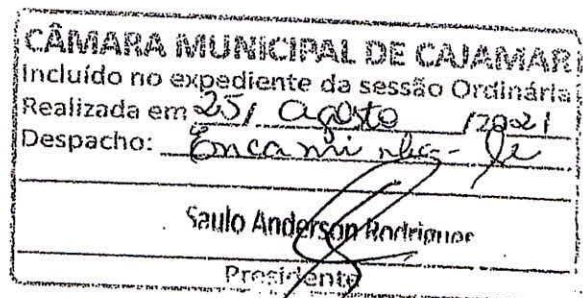 CÂMARA MUNICIPAL DE CAJAMAR
Incluído no expediente da sessão Ordinária
Realizada em 25/ agosto /2021
Despacho: Encaminha-se
Saulo Anderson Rodrigues
Presidente